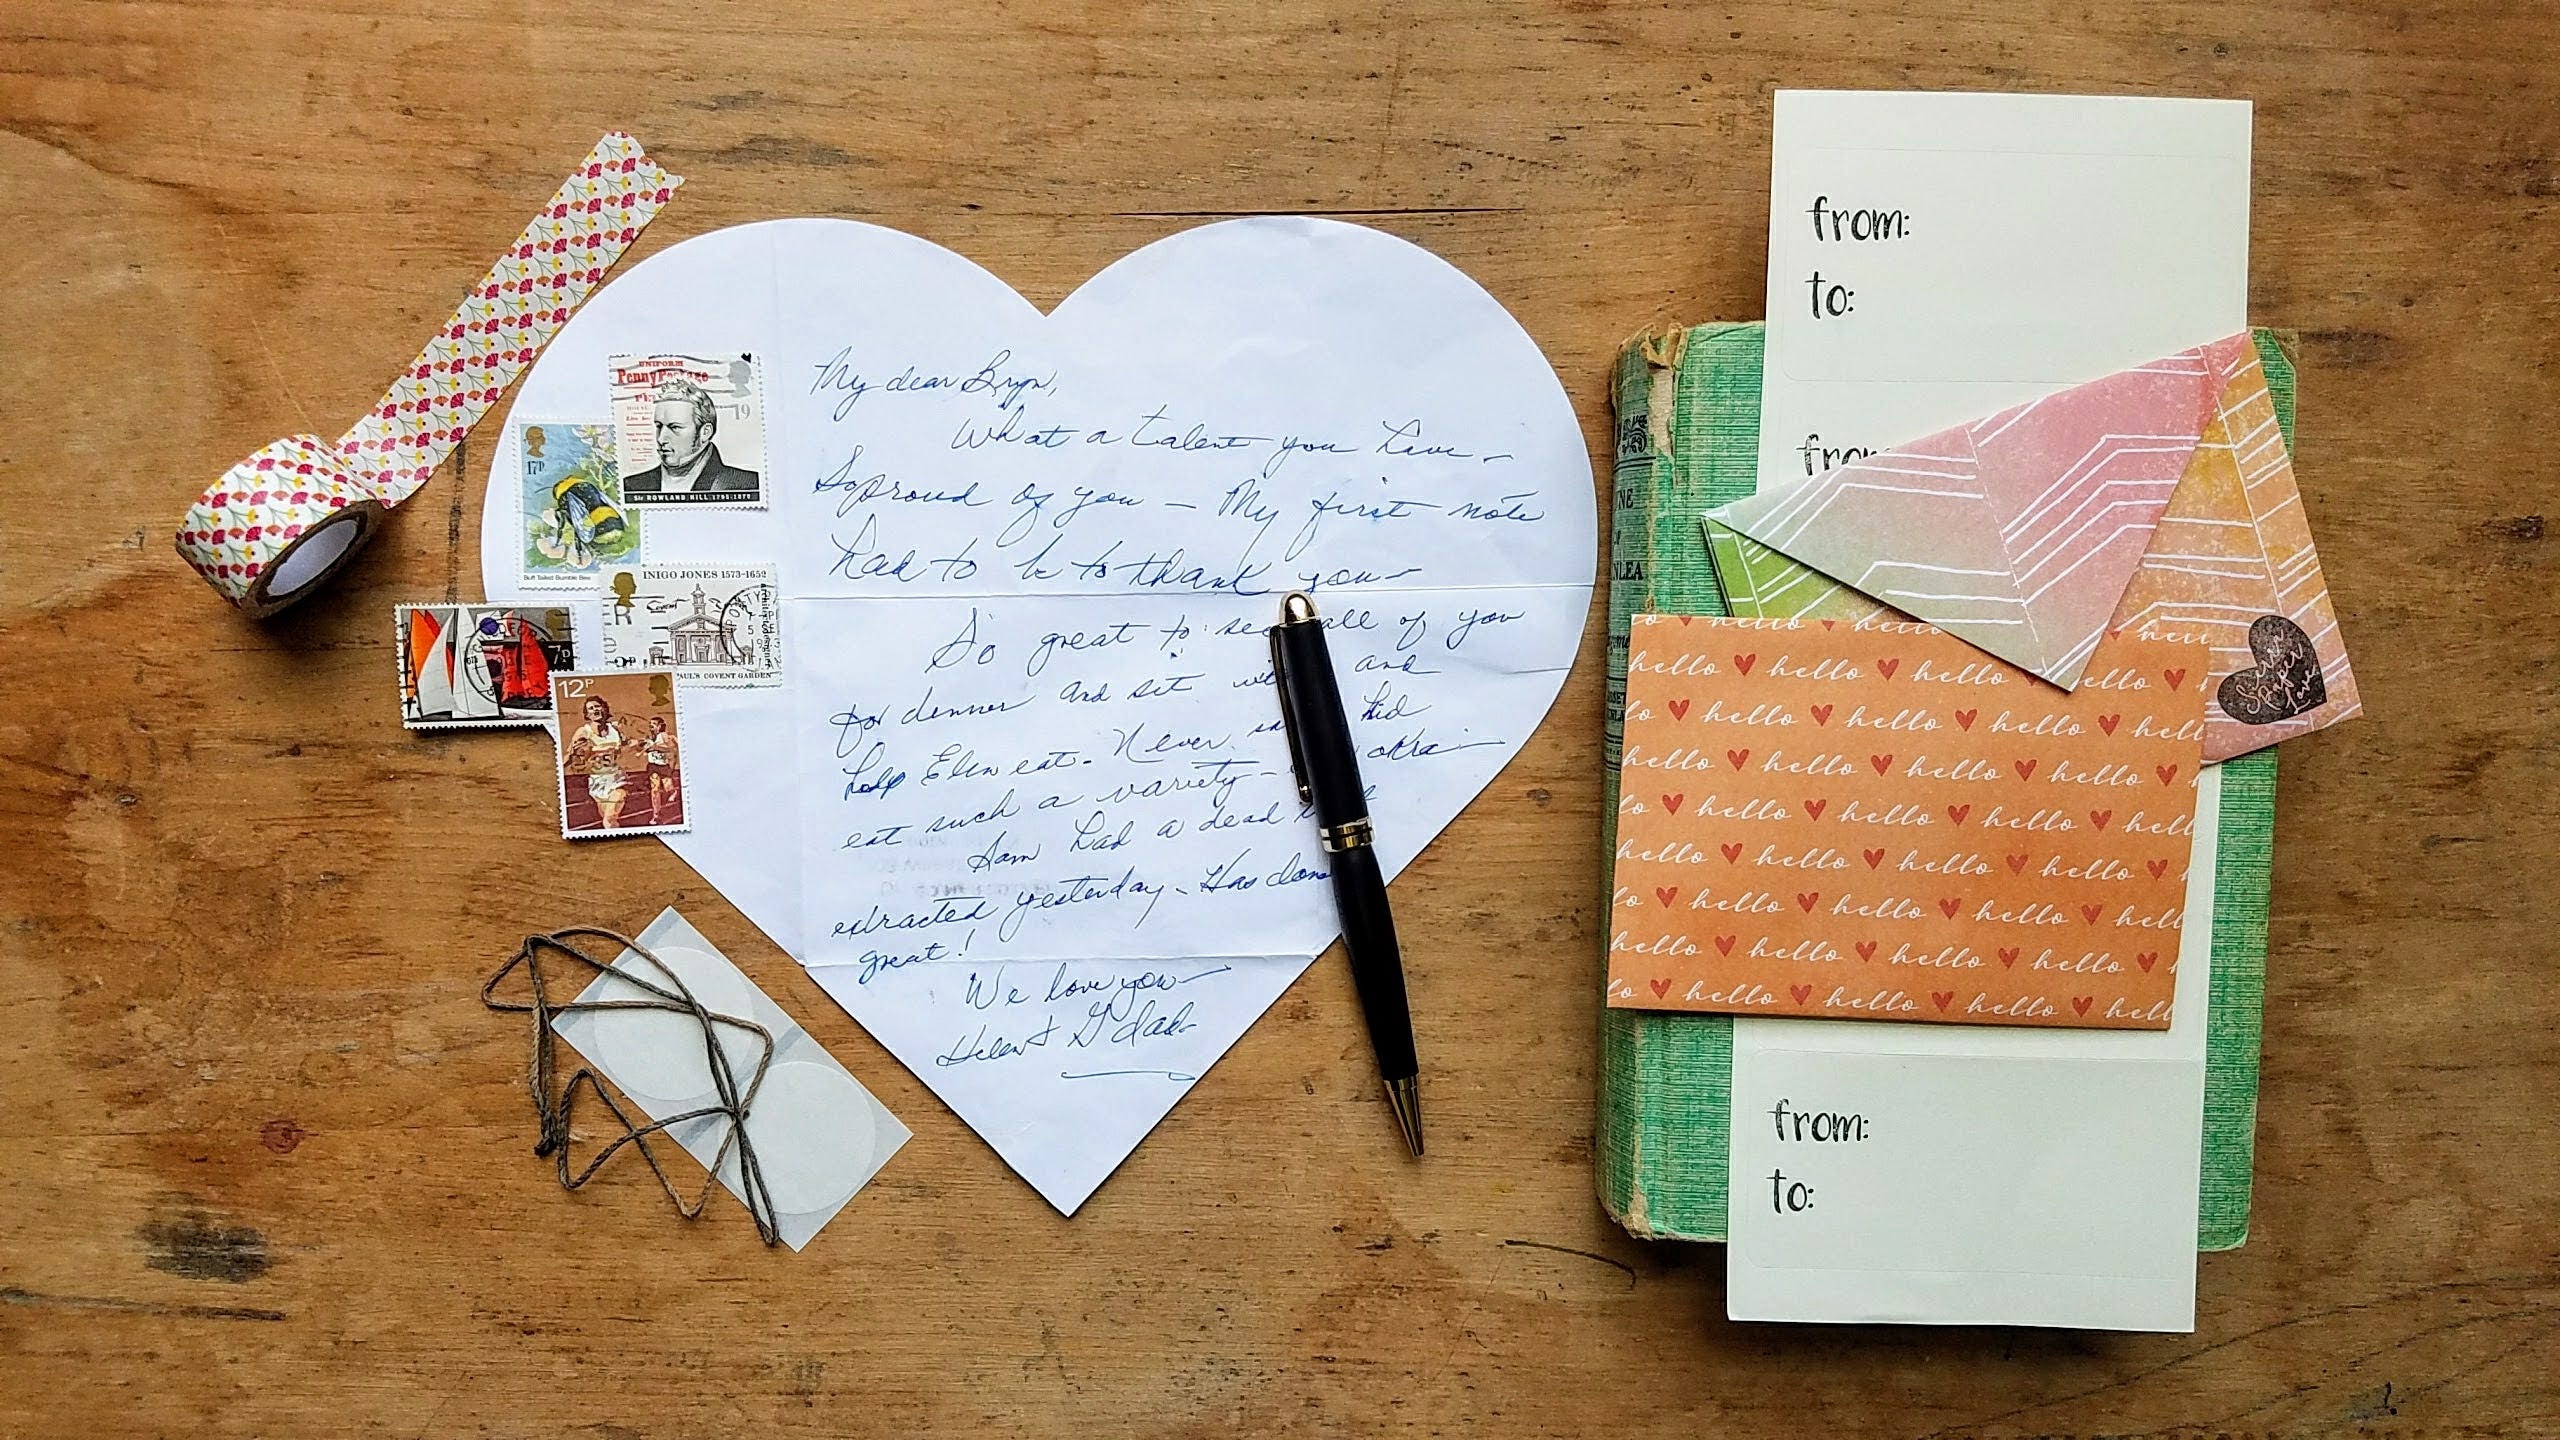 My dear Bryn,
What a talent you have –
So proud of you – My first note
had to be to thank you –
So great to see all of you
for dinner and sit and
help Elen eat. Never kid
eat such a variety – okra –
Sam had a dead
extracted yesterday – Has done
great!
We love you –
Helen & G'dad
UNIFORM
Penny Postage
19
Sir ROWLAND HILL 1795-1879
17P
Buff Tailed Bumble Bee
INIGO JONES 1573-1652
PAUL'S COVENT GARDEN
7P
12P
from:
to:
from:
hello hello hello hello
hello hello hello hello
hello hello hello hello
hello hello hello
hello hello hello hello
hello hello hello
hello hello hello hello
hello hello hello
Paper
Love
from:
to: